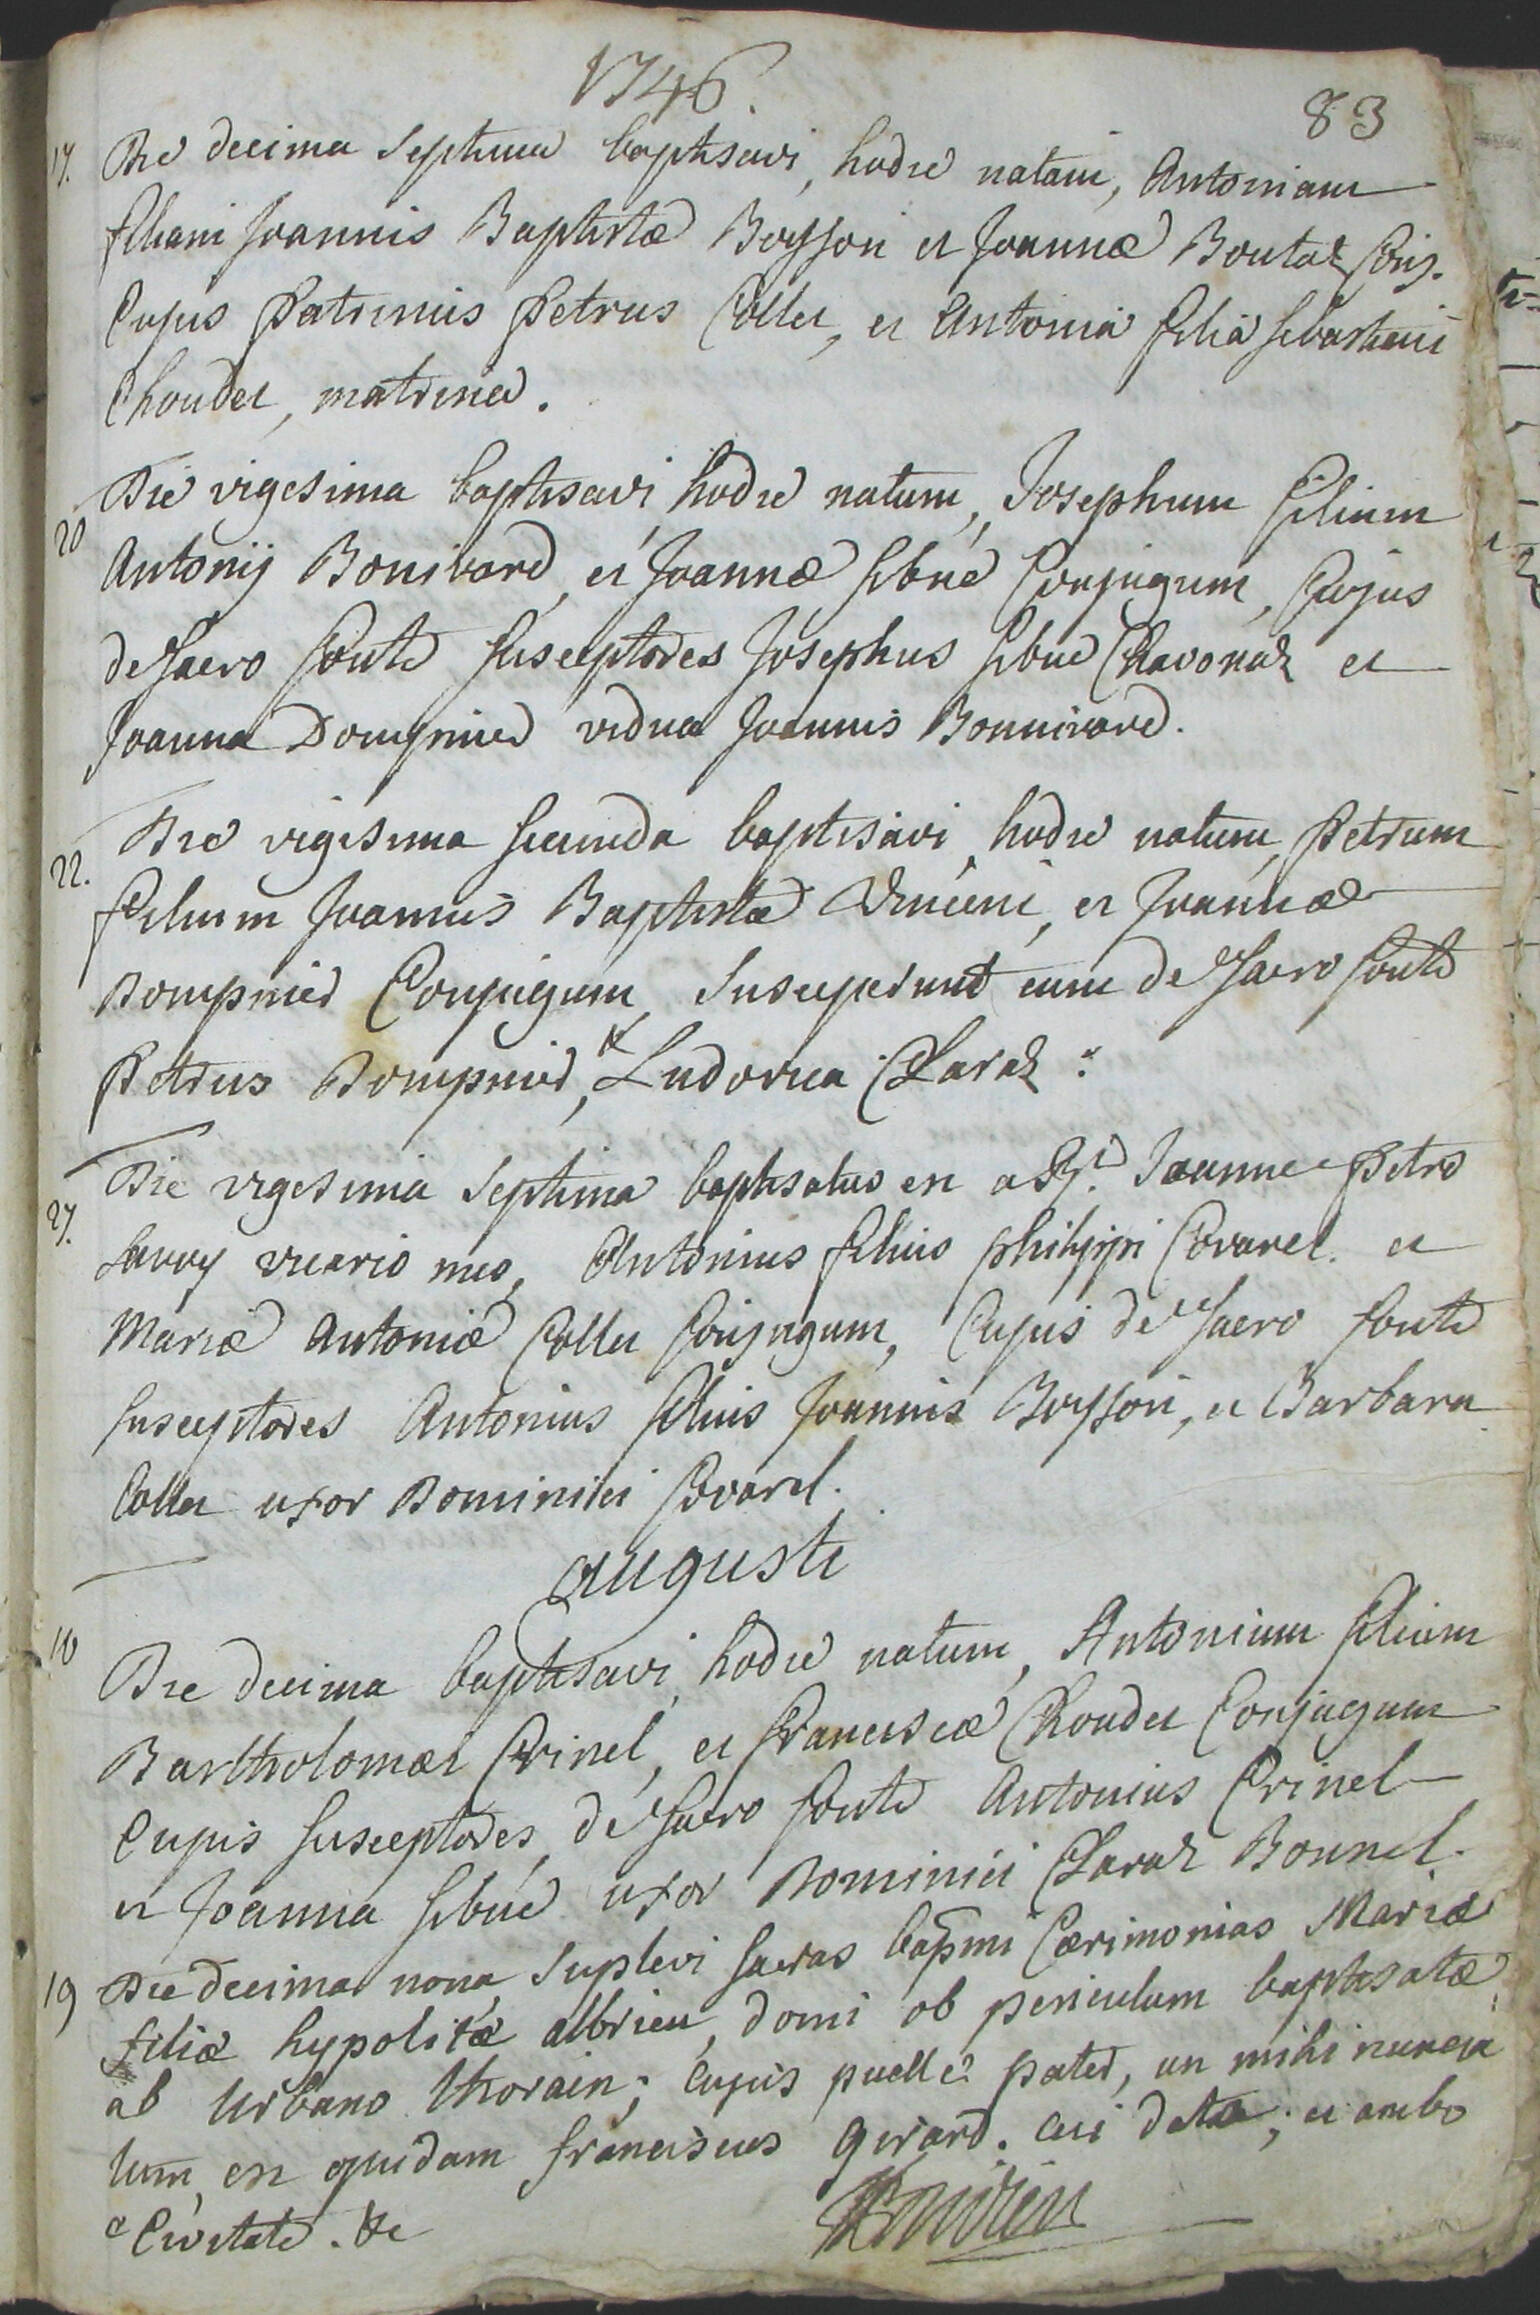 1746.
83
17. Die decima septima baptisavi, hodie natam, Antoniam
filiam Joannis Baptistæ Boysson et Joannæ Boutaz Conj.
Cujus Patrinus Petrus Collet, et Antonia filia sebastiani
Choudet, matrina.
20 Die vigesima baptisavi hodie natum, Josephum filium
Antonij Bonivard, et Joannæ sibue Conjugum, Cujus
de Sacro fonte susceptores Josephus sibue Chavonaz et
Joanna Dompnier vidua Joannis Bonnivard.
22. Die vigesima secunda baptisavi, hodie natum, Petrum
filium Joannis Baptistæ Vincent, et Joannæ
Dompnier Conjugum, Susceperunt eum de Sacro fonte
Petrus Dompnier, & Ludovica Claraz.
27. Die vigesima Septima baptisatus est a Rd. Joanne Petro
Savoy vicario meo, Antonius filius philippi Covarel et
Mariæ Antoniæ Collet Conjugum, Cujus de Sacro fonte
susceptores Antonius filius Joannis Boysson, et Barbara
Collet uxor Dominici Covarel.
Augusti
10 Die decima baptisavi hodie natum, Antonium filium
Bartholomæi Crinel, et franciscæ Choudet Conjugum
Cujus susceptores, de Sacro fonte Antonius Crinel
et Joanna sibue uxor Dominici Claraz Bonnel.
19 Die decima nona suplevi sacras bapmi Cærimonias Mariæ
filiæ hypolitæ albrieu, domi ob periculum baptisatæ
ab Urbano Thorain; Cujus puellæ pater, ut mihi nuncia
tum, est quidam franciscus Girard. Cui data; et ambo
e Civitate. &c